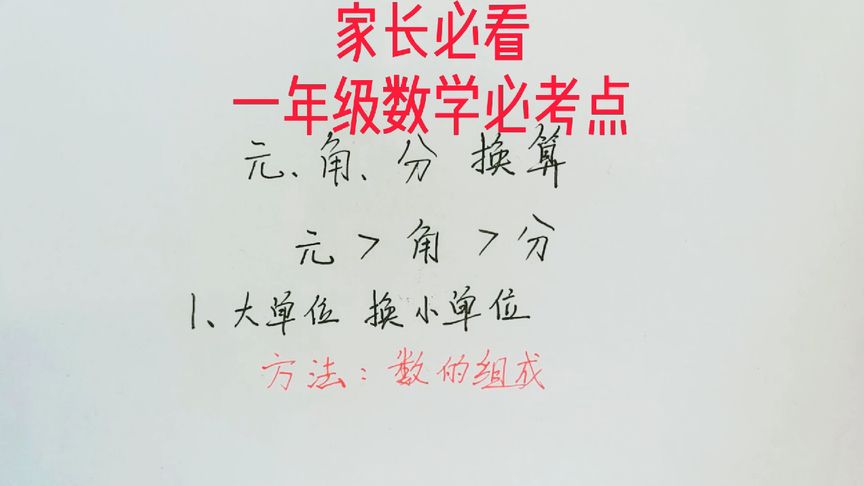 家长必看
一年级数学必考点
元、角、分 换算
元 > 角 > 分
1、大单位 换小单位
方法：数的组成